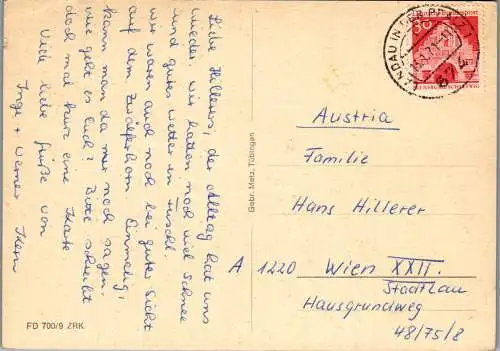 Liebe Hillerers, der Alltag hat uns
wieder. Wir hatten noch viel Schnee
und gutes Wetter in Fuschl.
Wir waren auch noch bei guter Sicht
auf dem Zwölferhorn. Einmalig,
kann man da nur noch sagen.
Wie geht es Euch? Bitte schreibt
doch mal kurz eine Karte
Viele liebe Grüße von
Inge + Werner
FD 700/9 ZRK
Gebr. Metz, Tübingen
Deutsche Bundespost
30
FLENSBURG/SCHLESWIG
LANDAU IN DER PFALZ
674
Austria
Familie
Hans Hillerer
A 1220 Wien XXII.
Stadlau
Hausgrundweg
48/75/8